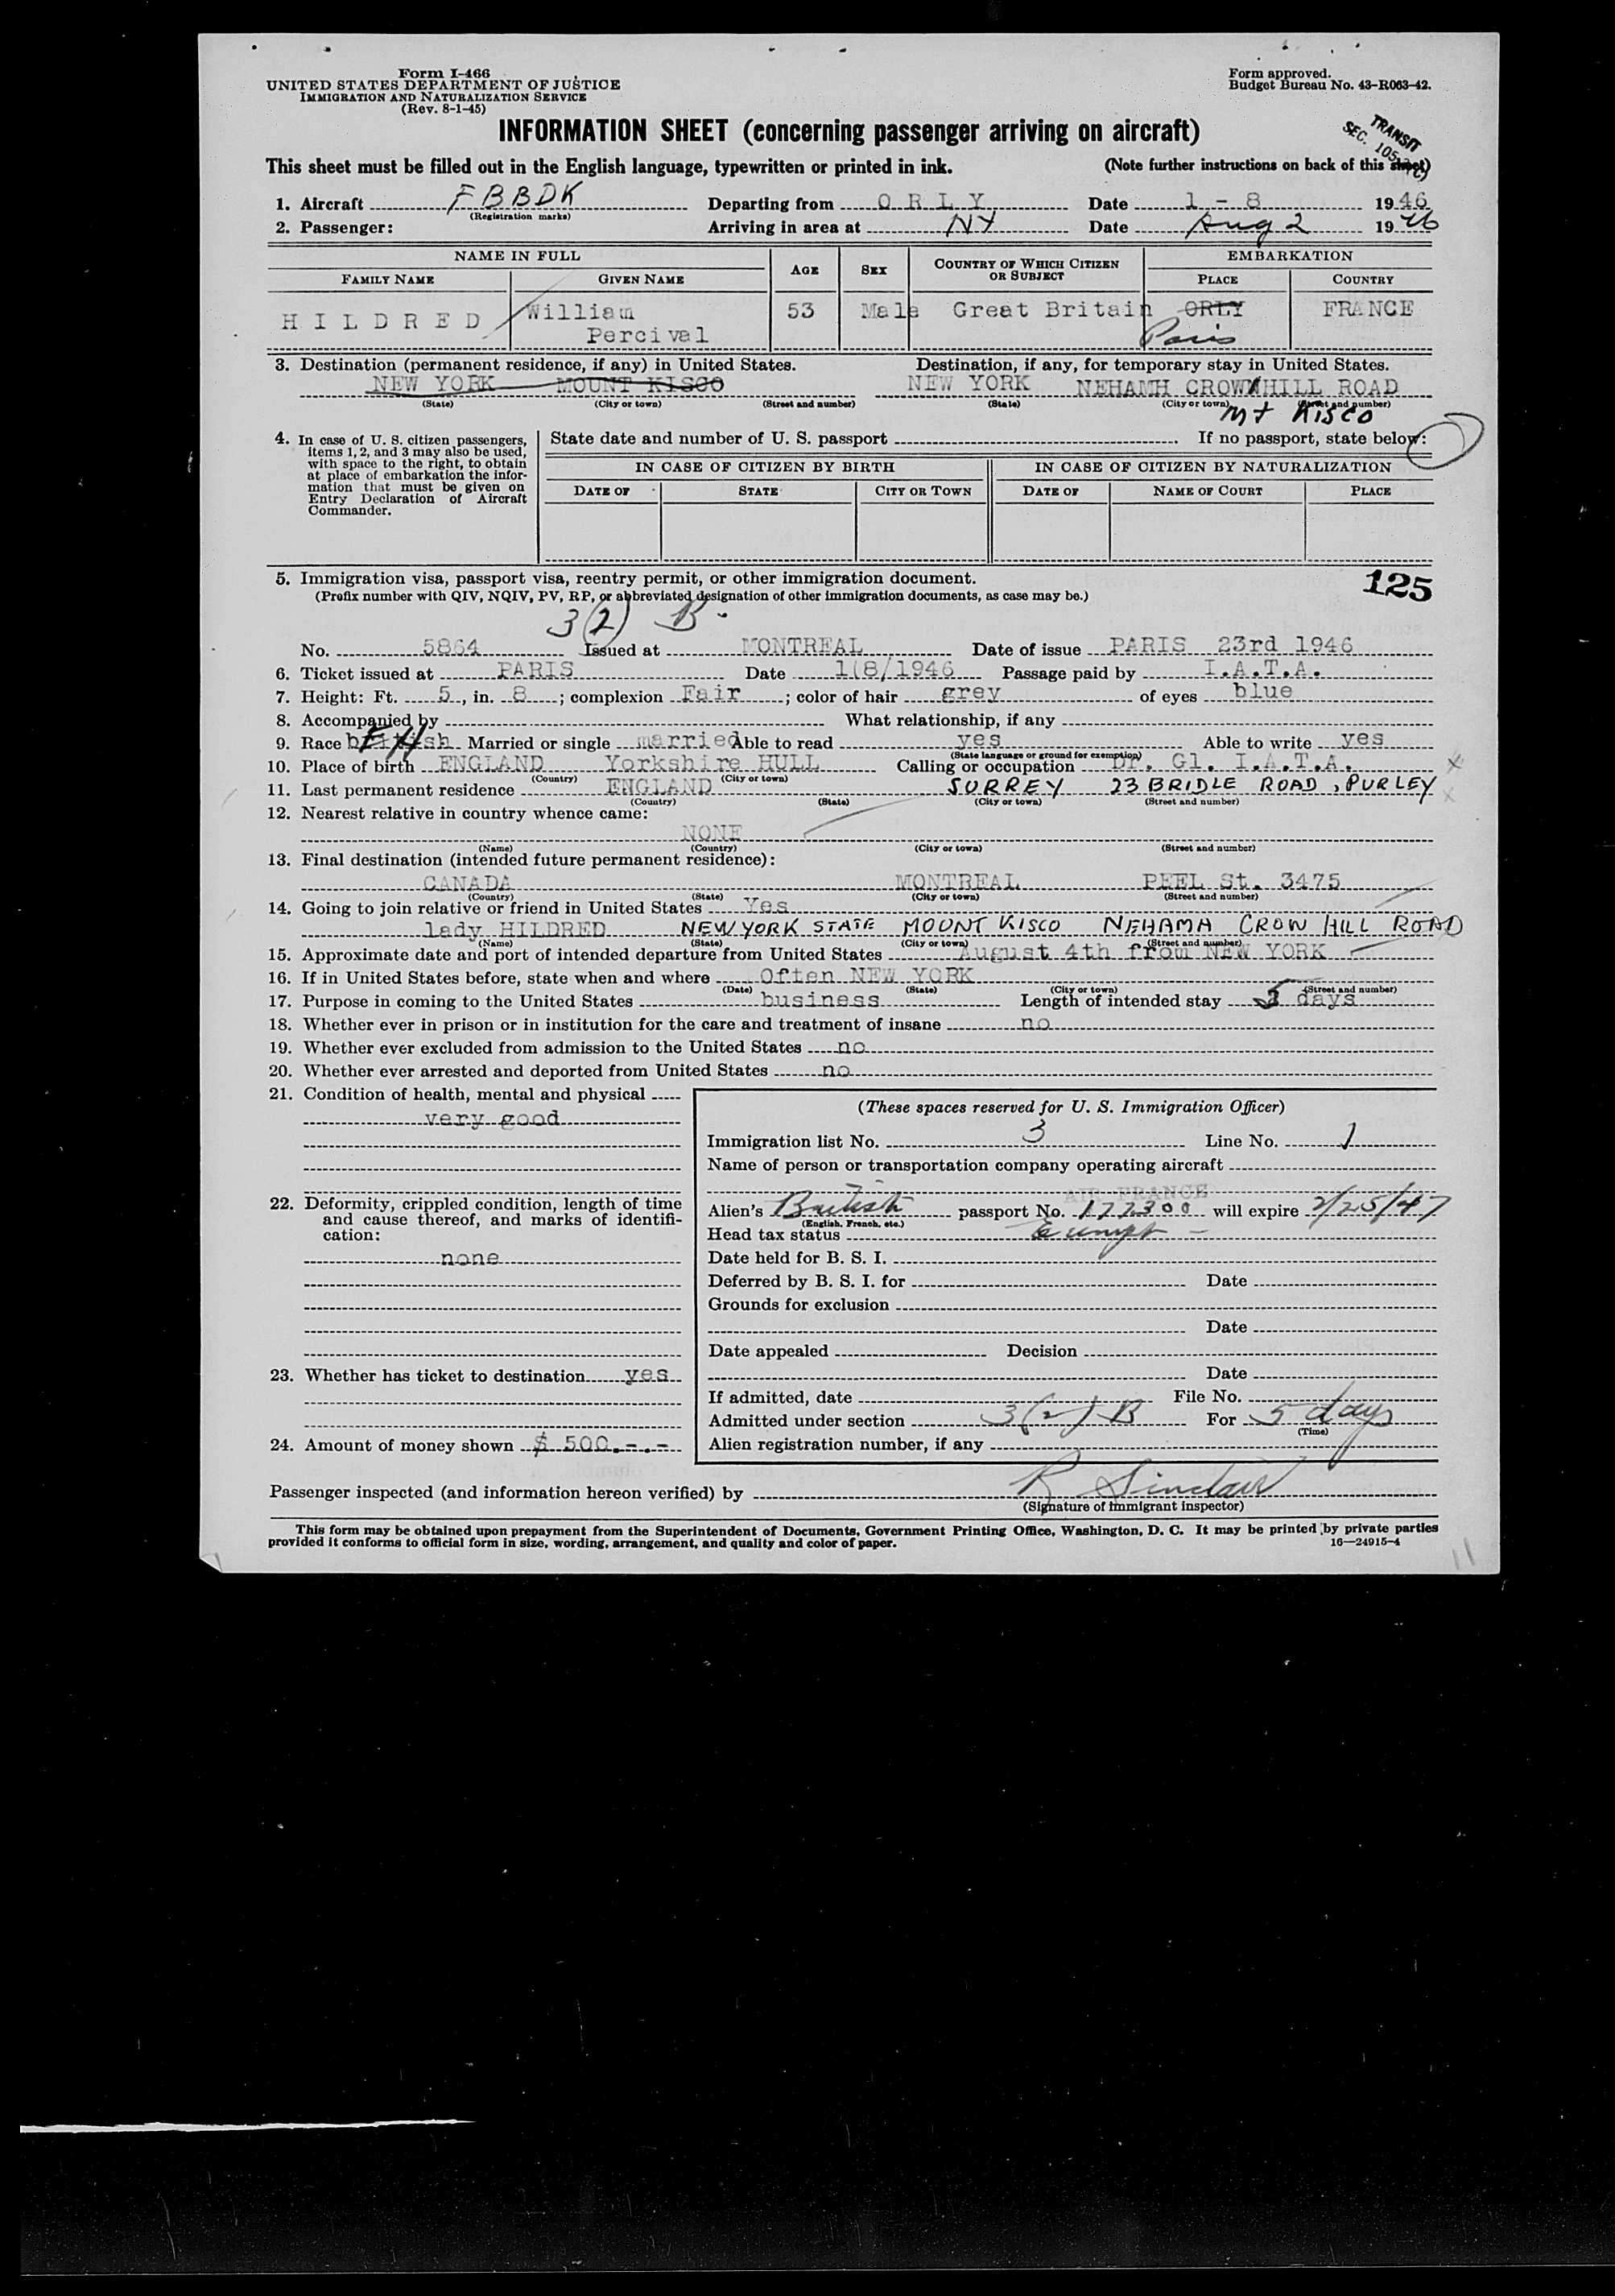 Form I-466
UNITED STATES DEPARTMENT OF JUSTICE
IMMIGRATION AND NATURALIZATION SERVICE
(Rev. 8-1-45)
Form approved.
Budget Bureau No. 43-R063-42.
INFORMATION SHEET (concerning passenger arriving on aircraft)
TRANSIT
SEC. 105
This sheet must be filled out in the English language, typewritten or printed in ink. (Note further instructions on back of this sheet)
1. Aircraft FBBDK Departing from ORLY Date 1 - 8 1946
(Registration marks)
2. Passenger: Arriving in area at NY Date Aug 2 1946
NAME IN FULL AGE SEX COUNTRY OF WHICH CITIZEN OR SUBJECT EMBARKATION
FAMILY NAME GIVEN NAME PLACE COUNTRY
HILDRED William Percival 53 Male Great Britain ORLY FRANCE
Paris
3. Destination (permanent residence, if any) in United States. Destination, if any, for temporary stay in United States.
NEW YORK MOUNT KISCO NEW YORK NEHAMH CROWNHILL ROAD
(State) (City or town) (Street and number) (State) (City or town) (Street and number)
Mt KISCO
4. In case of U. S. citizen passengers, items 1, 2, and 3 may also be used, with space to the right, to obtain at place of embarkation the information that must be given on Entry Declaration of Aircraft Commander.
State date and number of U. S. passport If no passport, state below:
IN CASE OF CITIZEN BY BIRTH IN CASE OF CITIZEN BY NATURALIZATION
DATE OF STATE CITY OR TOWN DATE OF NAME OF COURT PLACE
5. Immigration visa, passport visa, reentry permit, or other immigration document.
125
(Prefix number with QIV, NQIV, PV, RP, or abbreviated designation of other immigration documents, as case may be.)
3(2) B
No. 5864 Issued at MONTREAL Date of issue PARIS 23rd 1946
6. Ticket issued at PARIS Date 1(8/1946 Passage paid by I.A.T.A.
7. Height: Ft. 5, in. 8; complexion Fair; color of hair grey of eyes blue
8. Accompanied by What relationship, if any
9. Race british Married or single married Able to read yes Able to write yes
(State language or ground for exemption)
10. Place of birth ENGLAND Yorkshire HULL Calling or occupation Dr. Gl. I.A.T.A.
(Country) (City or town)
11. Last permanent residence ENGLAND SURREY 23 BRIDLE ROAD, PURLEY
(Country) (State) (City or town) (Street and number)
12. Nearest relative in country whence came:
NONE
(Name) (Country) (City or town) (Street and number)
13. Final destination (intended future permanent residence):
CANADA MONTREAL PEEL St. 3475
(Country) (State) (City or town) (Street and number)
14. Going to join relative or friend in United States Yes
lady HILDRED NEW YORK STATE MOUNT KISCO NEHAMA CROW HILL ROAD
(Name) (State) (City or town) (Street and number)
15. Approximate date and port of intended departure from United States August 4th from NEW YORK
16. If in United States before, state when and where Often NEW YORK
(Date) (State) (City or town) (Street and number)
17. Purpose in coming to the United States business Length of intended stay 5 days
18. Whether ever in prison or in institution for the care and treatment of insane no
19. Whether ever excluded from admission to the United States no
20. Whether ever arrested and deported from United States no
21. Condition of health, mental and physical
very good
22. Deformity, crippled condition, length of time and cause thereof, and marks of identification:
none
23. Whether has ticket to destination yes
24. Amount of money shown $ 500.-.-
(These spaces reserved for U. S. Immigration Officer)
Immigration list No. 3 Line No. 1
Name of person or transportation company operating aircraft
AIR FRANCE
Alien's British passport No. 177300 will expire 2/25/47
(English, French, etc.)
Head tax status Exempt -
Date held for B. S. I.
Deferred by B. S. I. for Date
Grounds for exclusion
Date
Date appealed Decision
Date
If admitted, date File No.
Admitted under section 3(2) B For 5 days
(Time)
Alien registration number, if any
Passenger inspected (and information hereon verified) by R Sinclair
(Signature of immigrant inspector)
This form may be obtained upon prepayment from the Superintendent of Documents, Government Printing Office, Washington, D. C. It may be printed by private parties
provided it conforms to official form in size, wording, arrangement, and quality and color of paper.
16—24915-4
11